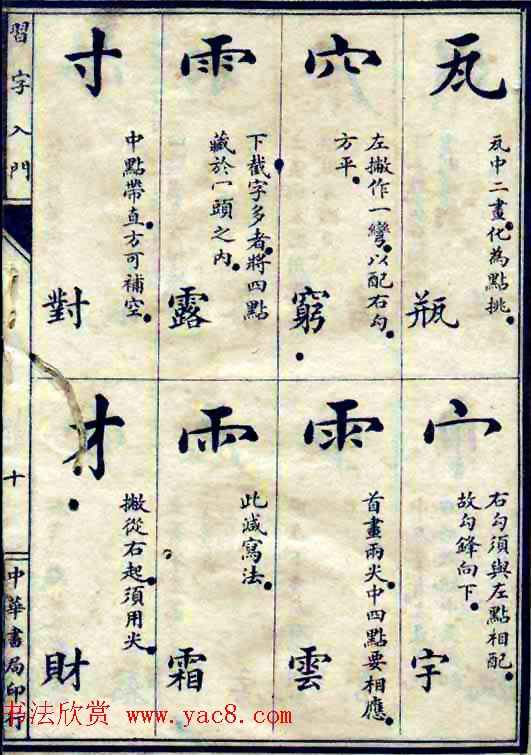 瓦
瓦中二畫化為點挑
瓶
穴
左撇作一彎以配右勾
方平
窮
雨
下截字多者將四點
藏於一頭之內
露
寸
中點帶直方可補空
對
宀
右勾須與左點相配
故勾鋒向下
宇
雨
首畫兩尖中四點要相應
雲
雨
此減寫法
霜
才
撇從右起須用尖
財
習字入門
十
中華書局印行
书法欣赏 www.yac8.com